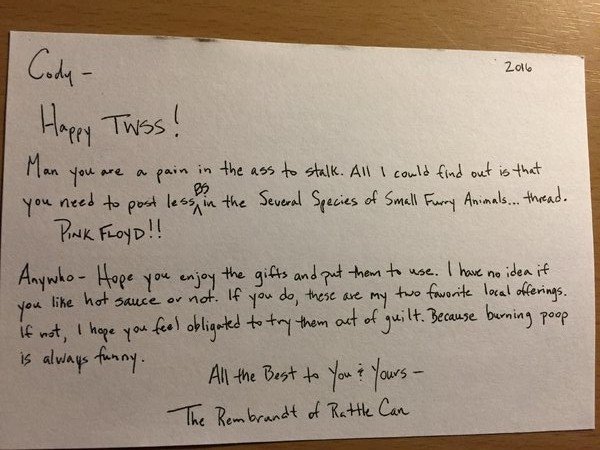 Cody –
2016
Happy TWSS!
Man you are a pain in the ass to stalk. All I could find out is that
you need to post less BS in the Several Species of Small Furry Animals... thread.
PINK FLOYD!!
Anywho – Hope you enjoy the gifts and put them to use. I have no idea if
you like hot sauce or not. If you do, these are my two favorite local offerings.
If not, I hope you feel obligated to try them out of guilt. Because burning poop
is always funny.
All the Best to You & Yours –
The Rembrandt of Rattle Can